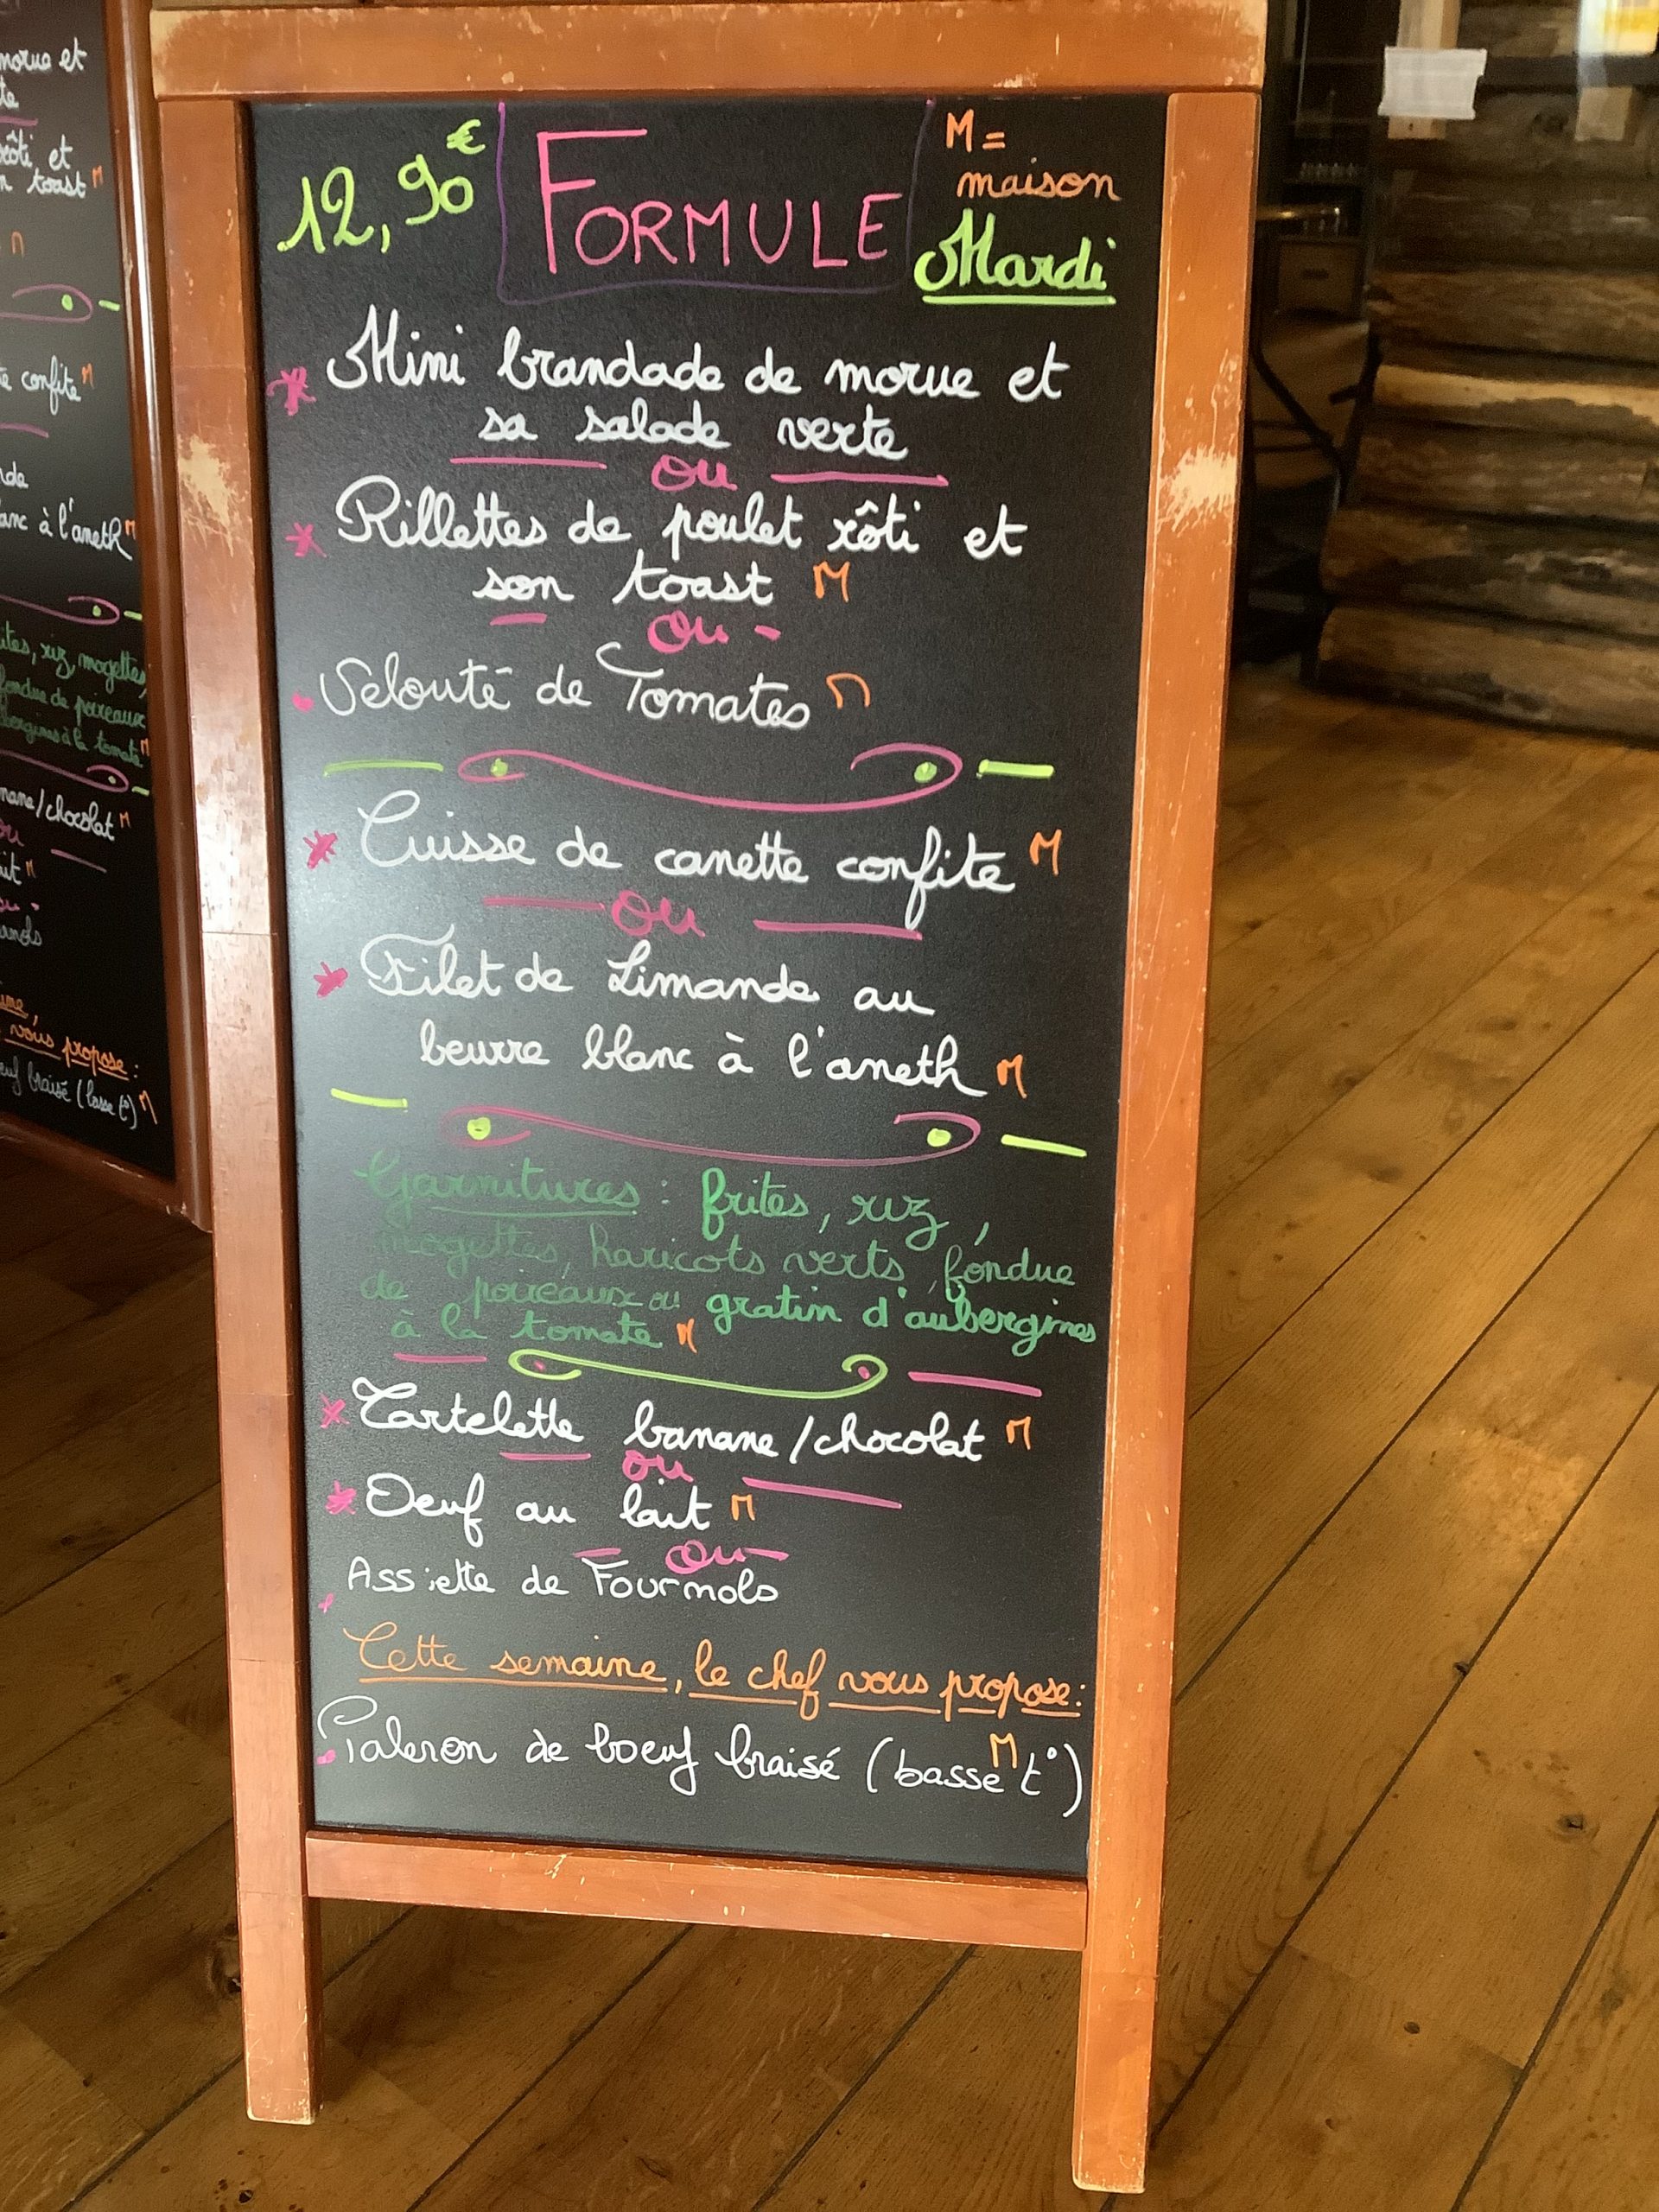 morue et
rôti et
toast M
confite M
anc à l'aneth M
riz, mogettes,
fondue de poireaux
à la tomate M
/chocolat M
vous propose :
braisé (basse t°) M
12,90€
FORMULE
M =
maison
Mardi
Mini brandade de morue et
sa salade verte
ou
Rillettes de poulet rôti et
son toast M
ou
Velouté de Tomates M
Cuisse de canette confite M
ou
Filet de Limande au
beurre blanc à l'aneth M
Garnitures : frites, riz,
mogettes, haricots verts, fondue
de poireaux ou gratin d'aubergines
à la tomate M
Tartelette banane/chocolat M
ou
Oeuf au lait M
ou
Assiette de Fourmols
Cette semaine, le chef vous propose :
Paleron de boeuf braisé (basse t°) M